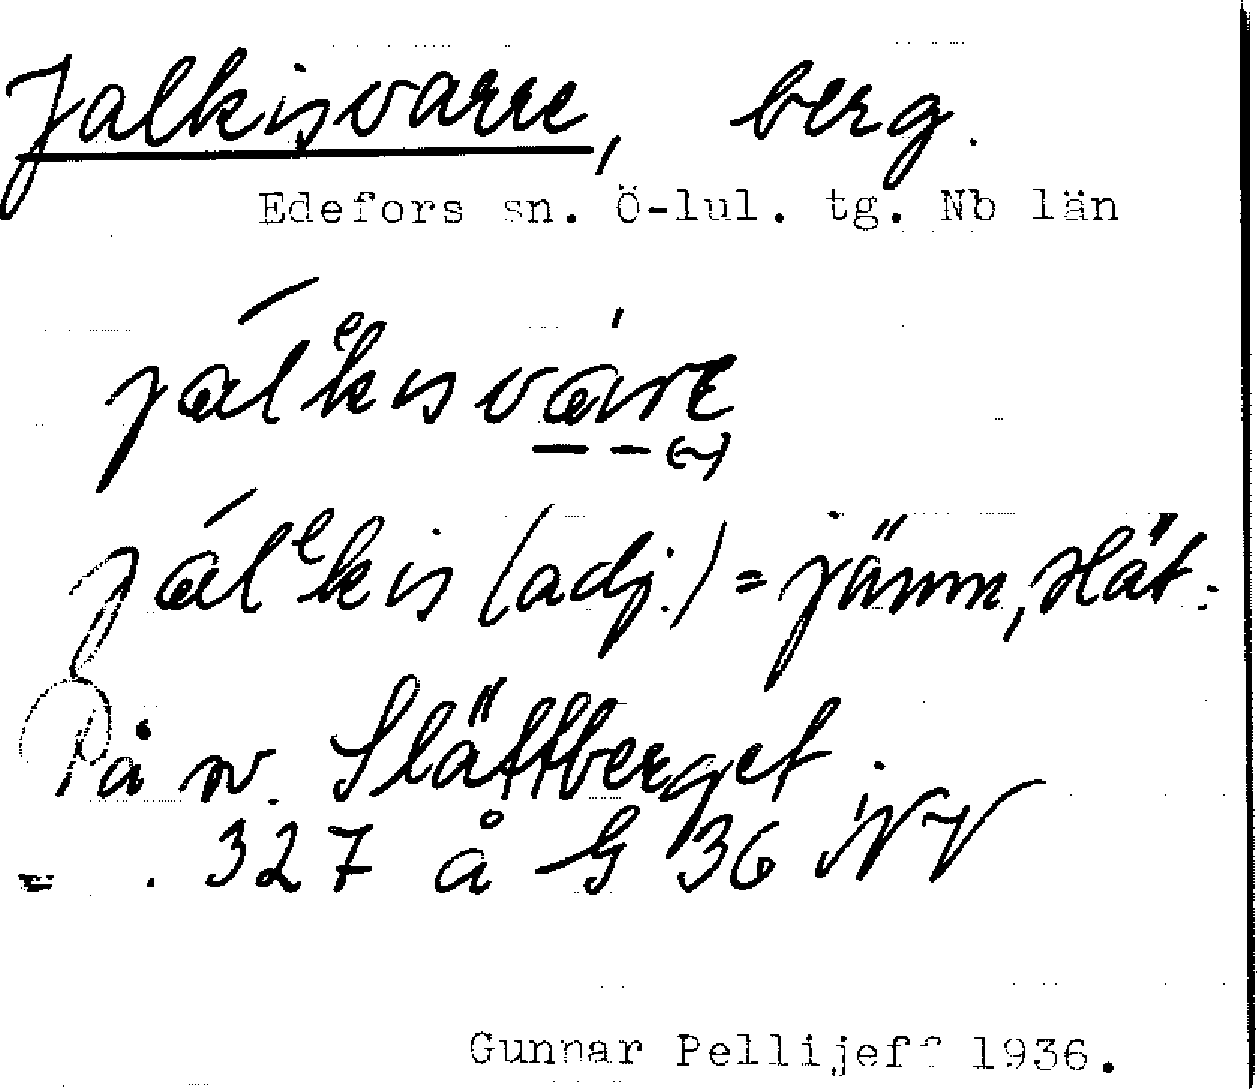 Jalkisvarre, berg.
Edefors sn. Ö-lul. tg. Nb län
jálᵉkisvárrɛ
jálᵉkis (adj.) = jämn, slät.
På sv. Slättberget.
= . 327 å G 36 NV
Gunnar Pellijeff 1936.